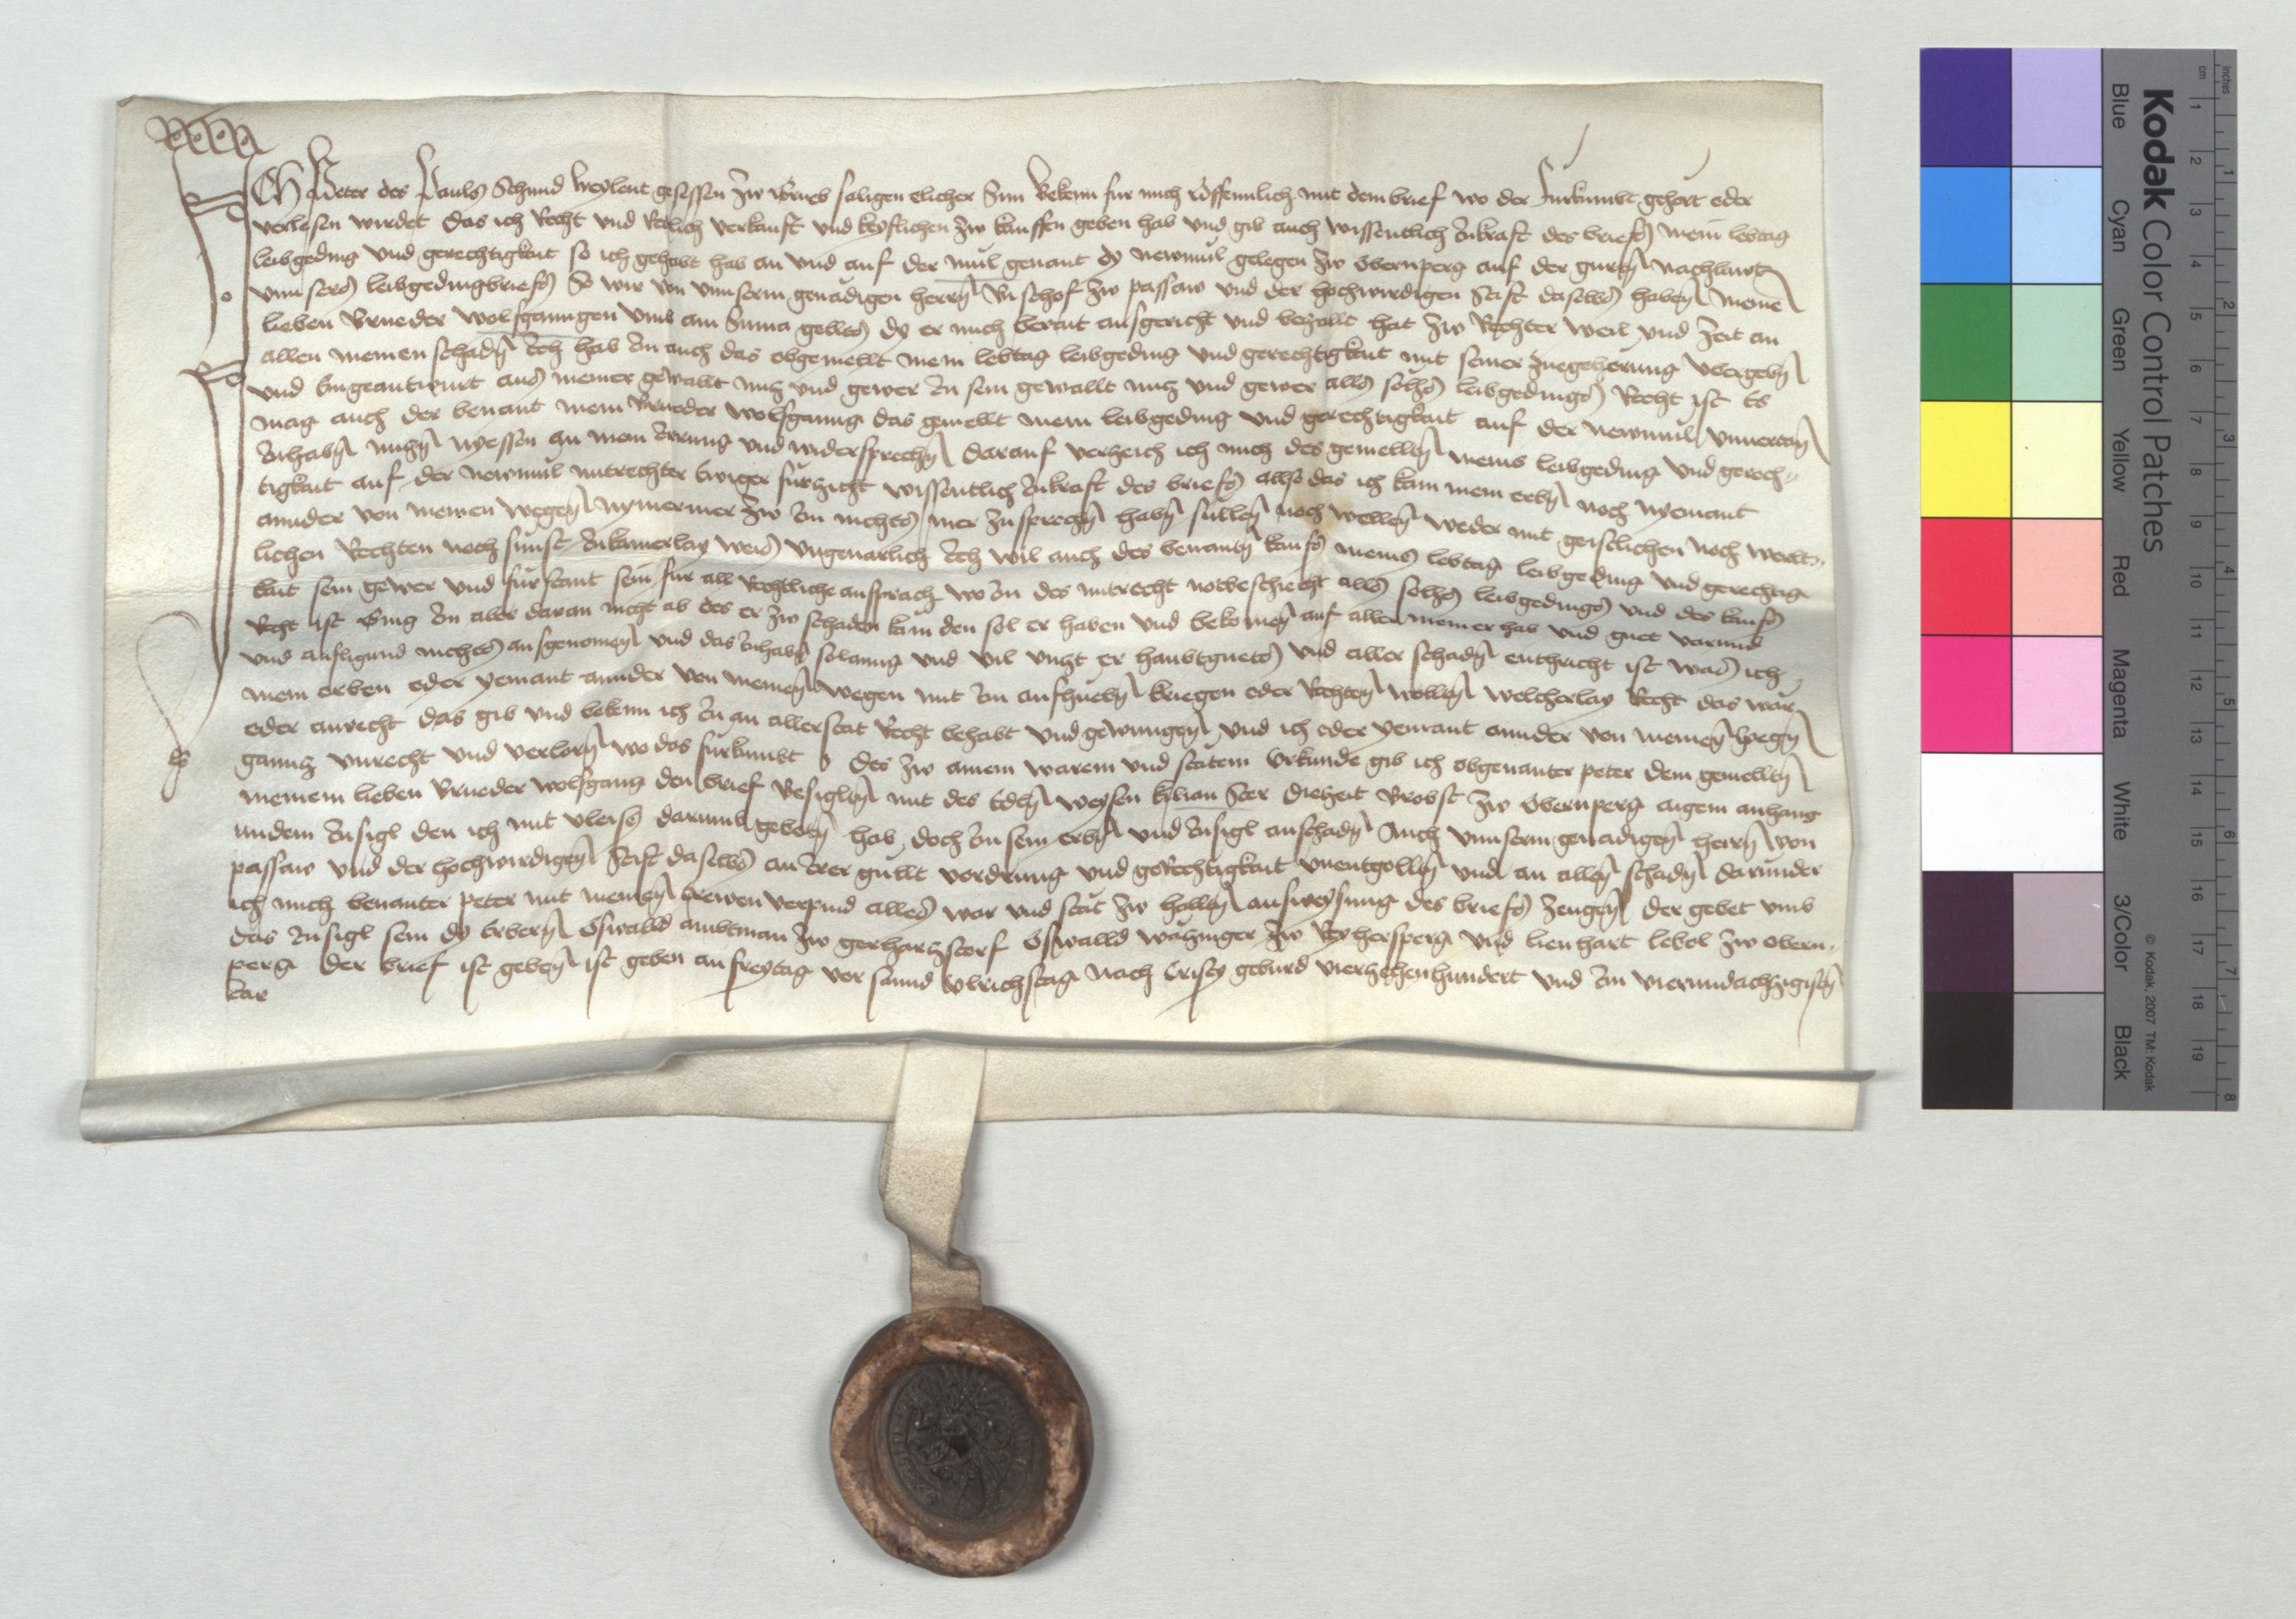 ICh Peter des Pauls Schmid weylent gesessen zw saligen elicher Sun Bekenn fur mich offennlich mit dem brief wo der furkumbt gehort oder
verlesen wirdet Das ich Recht und Redlich verkauft und keyflichen zw kauffen geben hab und gib auch wissentlich Inkraft des briefs mein lebtag
leibgeding und gerechtigkait so ich gehabt hab an und auf der mül genant dy newmül gelegen zw Obernperg auf der gurtn nachlawt
unnsers leibgedingbriefs So wir von unnserm genädigen herrn Bischof zw passaw und der hochwirdigen Stift daselbs haben meinē
lieben Brueder wolfganngen umb ain Suma gelts dy er mich berait ausgericht und bezallt hat zw Rechter weil und zeit an
allen meinen schadn Ich hab Im auch das obgemellt mein lebtag leibgeding und gerechtigkait mit seiner zuegehorung ubergebn
und Ingeantwurt aus meiner gewallt nutz und gewer In sein gewallt nutz und gewer alls solhs leibgedings Recht ist Es
mag auch der benant mein Brueder wolfganng das gemellt mein leibgeding und gerechtigkait auf der newmül
Inhabn nutzn nyessen an mein Irrung und widersprechn Darauf verzeich ich mich des gemelltn meins leibgeding und gerech-
tigkait auf der newmül mitrechter Ewiger fürzicht wissentlich Inkraft des briefs also das ich kain mein erbn noch nyemant
annder von meinen wegen nymermer zw Im nichts mer zusprechn habn sullen noch wellen weder mit geistlichen noch werlt-
lichen Rechten noch sunst Inkainerlay weis ungeuarlich Ich wil auch des benantn kaufs meins lebtag leibgeding und gerechtig
kait sein gewer und fürstant sein fur all Rechtliche ansprach wo Im des mitrecht notbeschiecht alls solhs leibgedings und des kaufs
Recht ist Ging Im aber daran icht ab des er zw schaden käm den sol er haben und bekomen auf aller meiner hab und guet varund
und aufligund nichts ausgenomen und das Inhabn solanng und vil unzt er haubtguets und aller schadn enthricht ist was ich
mein erben oder yemant annder von meinen wegen mit Im aufhuebn kriegen oder Rechten wollen welcherlay Recht das wär
oder anrecht das gib und bekenn ich Im an allerstat Recht behabt und gewungen und ich oder yemant annder von meinen wegn
ganntz unrecht und verlorn wo das furkumbt Des zw ainem warem und statem Urkunde gib ich obgenanter peter dem gemelltn
meinem lieben Brueder wolfgang den brief Besigltn mit des Edln weysen kilian Ster Diezeit Brobst zw Obernperg aigem anhang
undem Insigl den ich mit vleis darumb gebeten hab doch Im sein erbn und Insigl anschadn Auch unnserm genadigen herrn von
passaw und der hochwirdigen Stift daselbs an Irer güllt vordrung und geRechtigkait unentgolltn und an allen schadn darunder
ich mich benanter peter mit meinen trewen verpind alles war und stät zw hallten ausweysung des briefs zeugen der gebet umb
das Insigl sein dy Erbern Oswalld ambtman zw gerhartzstorf Oswalld wätzinger zw Reyhersperg und lienhart lebol zw obern-
perg Der brief ist geben ist geben an freytag vor sannd Ulrichstag nach Cristy geburd vierzehenhundert und Im vierundachtzigistn
Jar
Kodak Color Control Patches
Blue Cyan Green Yellow Red Magenta White 3/Color Black
© Kodak, 2007 TM: Kodak
cm 1 2 3 4 5 6 7 8 9 10 11 12 13 14 15 16 17 18 19
inches 1 2 3 4 5 6 7 8